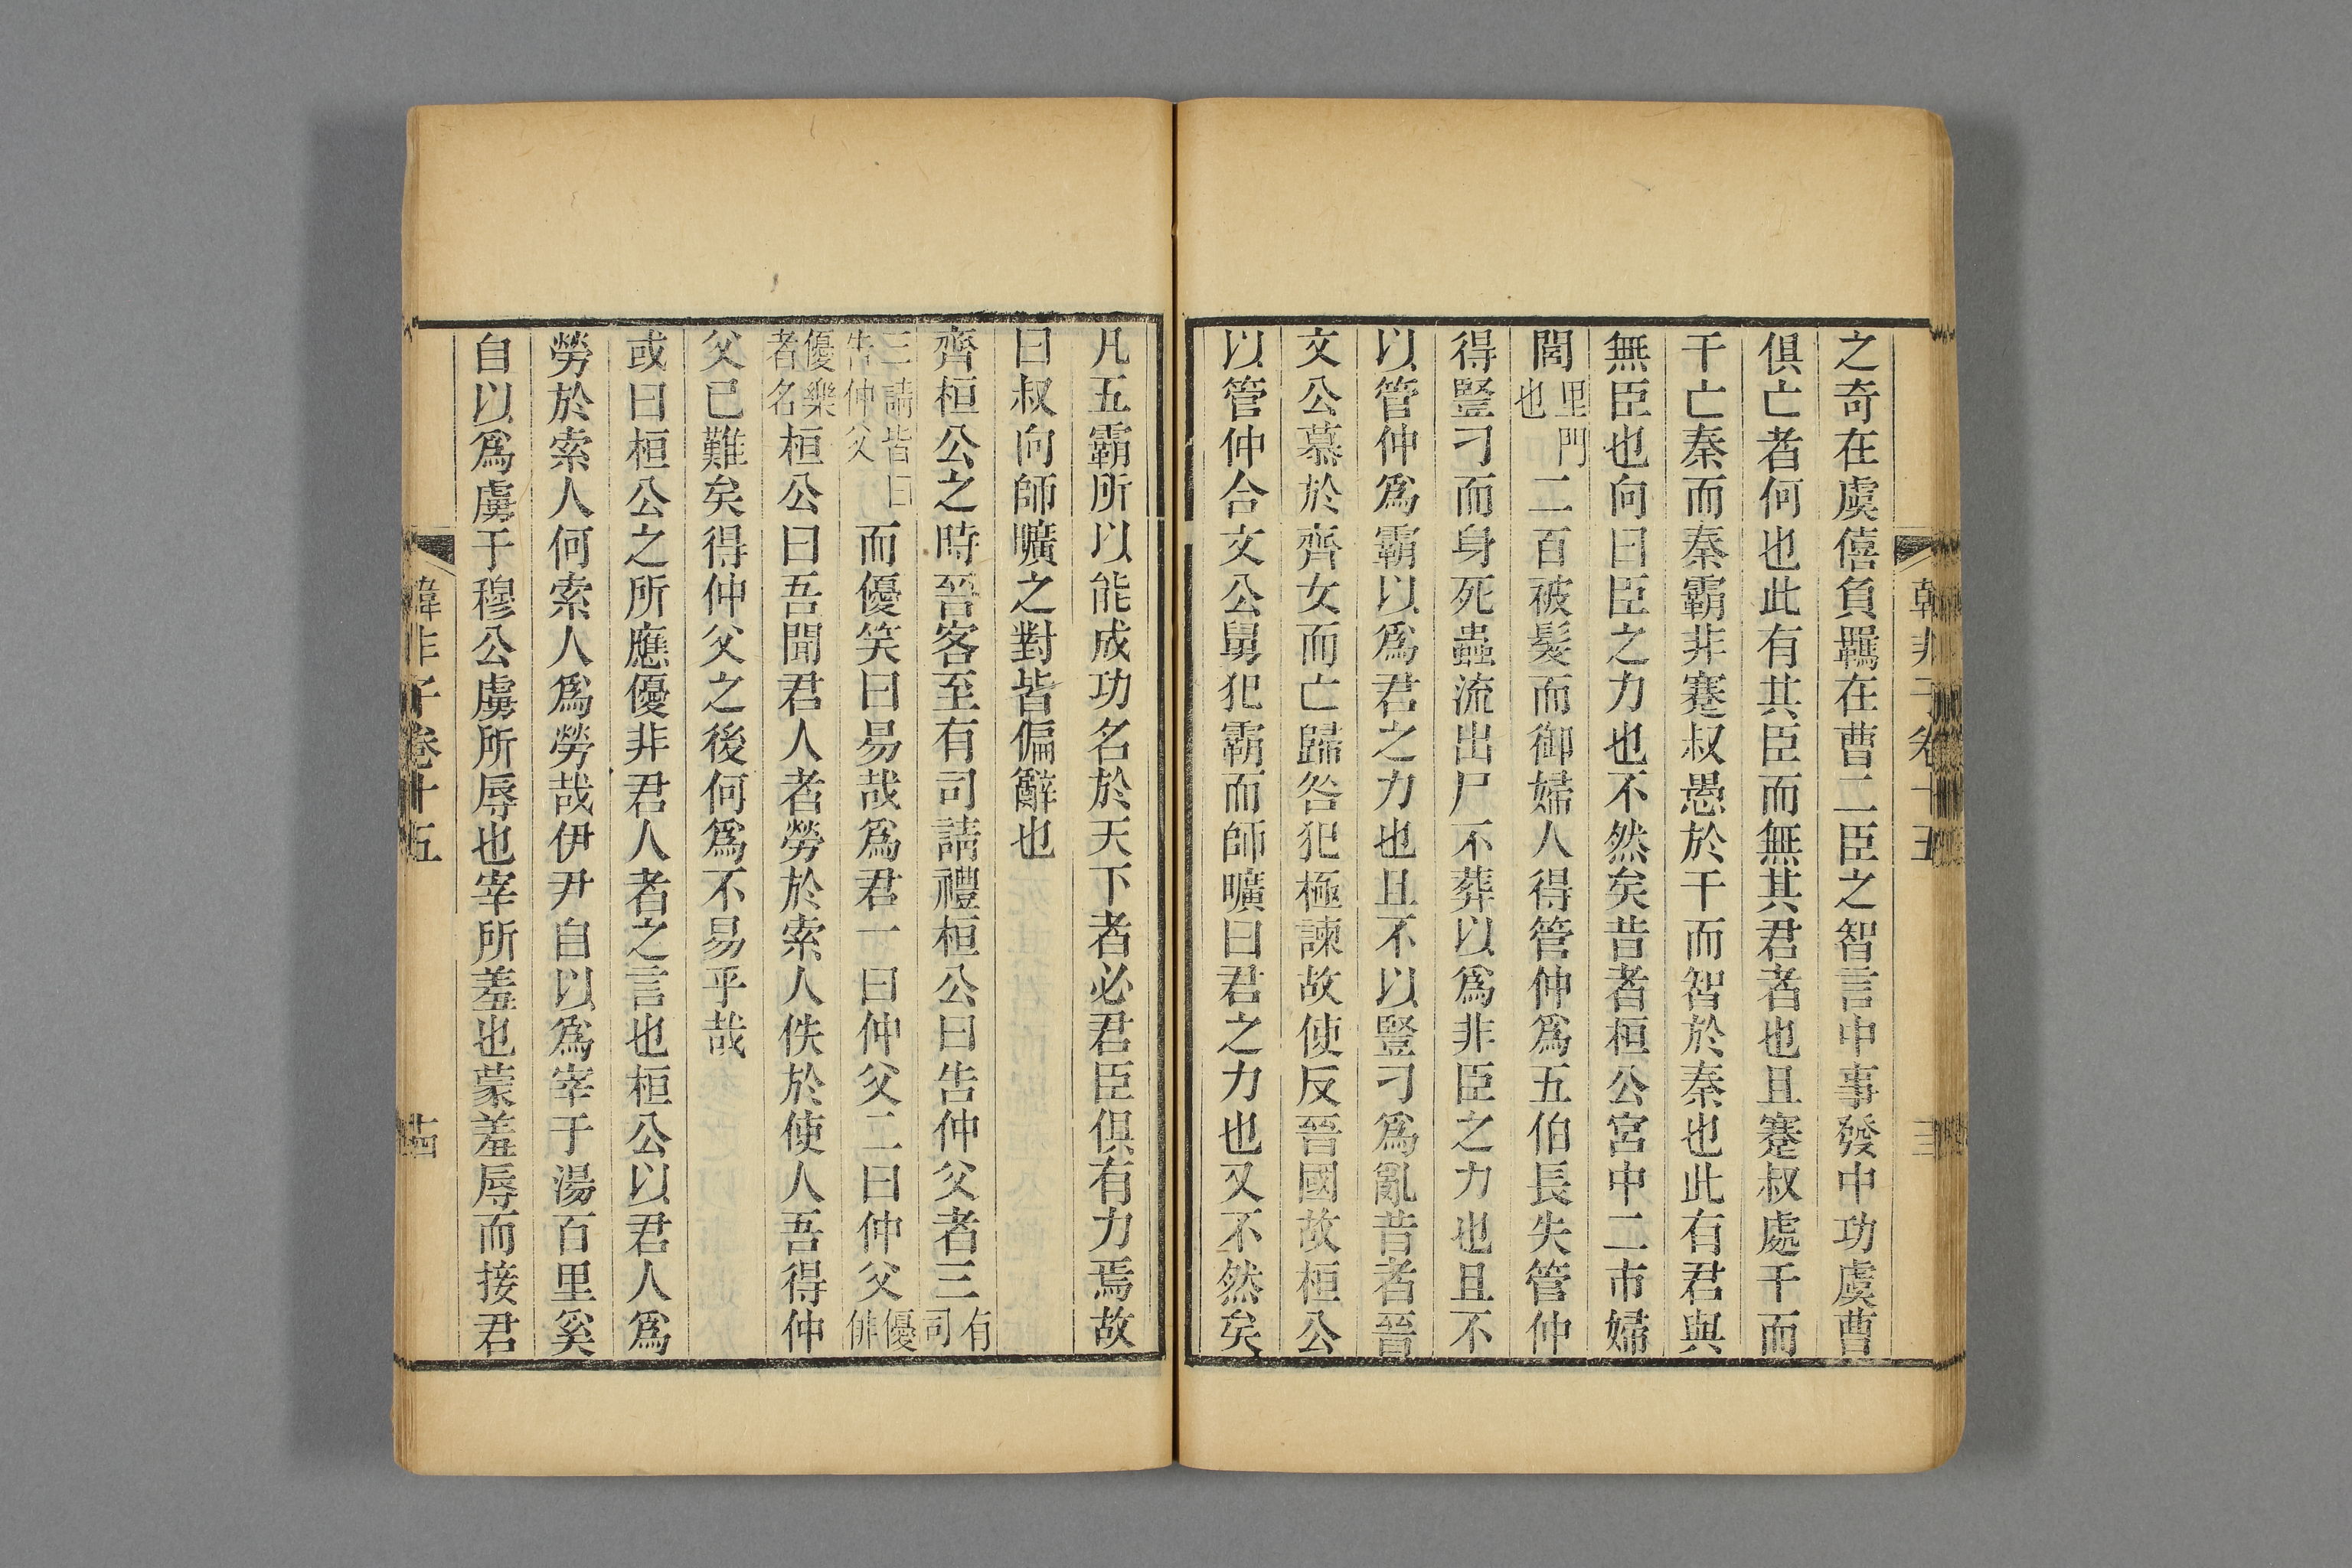 韓非子卷十五
之奇在虞僖負羈在曹二臣之智言中事發中功虞曹
俱亡者何也此有其臣而無其君者也且蹇叔處干而
干亡秦而秦霸非蹇叔愚於干而智於秦也此有君與
無臣也向曰臣之力也不然矣昔者桓公宮中二市婦
閭里門也二百被髮而御婦人得管仲爲五伯長失管仲
得豎刁而身死蟲流出尸不葬以爲非臣之力也且不
以管仲爲霸以爲君之力也且不以豎刁爲亂昔者晉
文公慕於齊女而亡歸咎犯極諫故使反晉國故桓公
以管仲合文公舅犯霸而師曠曰君之力也又不然矣
凡五霸所以能成功名於天下者必君臣俱有力焉故
曰叔向師曠之對皆偏辭也
齊桓公之時晉客至有司請禮桓公曰告仲父者三有司
三請皆曰告仲父而優笑曰易哉爲君一曰仲父二曰仲父優俳
優樂者名桓公曰吾聞君人者勞於索人佚於使人吾得仲
父已難矣得仲父之後何爲不易乎哉
或曰桓公之所應優非君人者之言也桓公以君人爲
勞於索人何索人爲勞哉伊尹自以爲宰于湯百里奚
自以爲虜于穆公虜所辱也宰所羞也蒙羞辱而接君
韓非子卷十五
十四